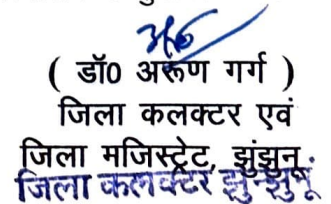 ( डॉ0 अरूण गर्ग )
जिला कलक्टर एवं
जिला मजिस्ट्रेट, झुंझुनू
जिला कलक्टर झुन्झुनूं